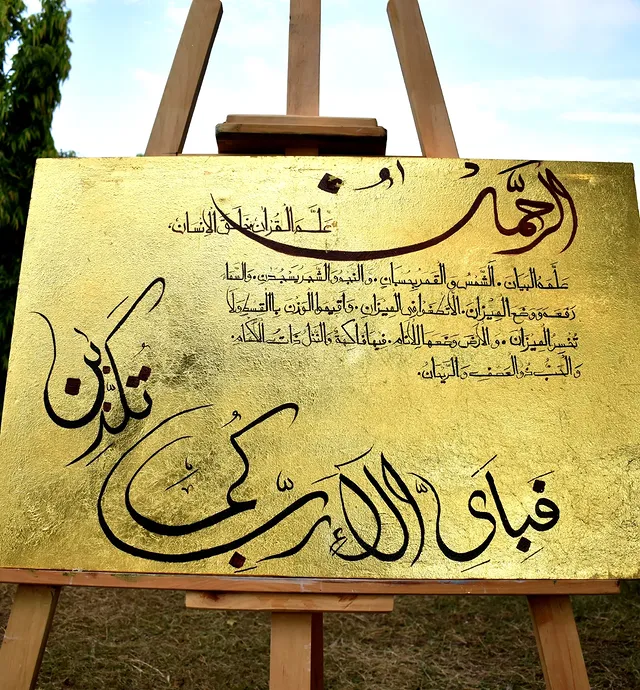 الرحمٰن
علم القرآن خلق الإنسان.
علمه البيان. الشمس والقمر بحسبان. والنجم والشجر يسجدن. والسماء
رفعها ووضع الميزان. ألا تطغوا في الميزان. وأقيموا الوزن بالقسط ولا
تخسروا الميزان. والأرض وضعها للأنام. فيها فاكهة والنخل ذات الأكمام.
والحب ذو العصف والريحان.
فبأي آلاء ربكما
تكذبن